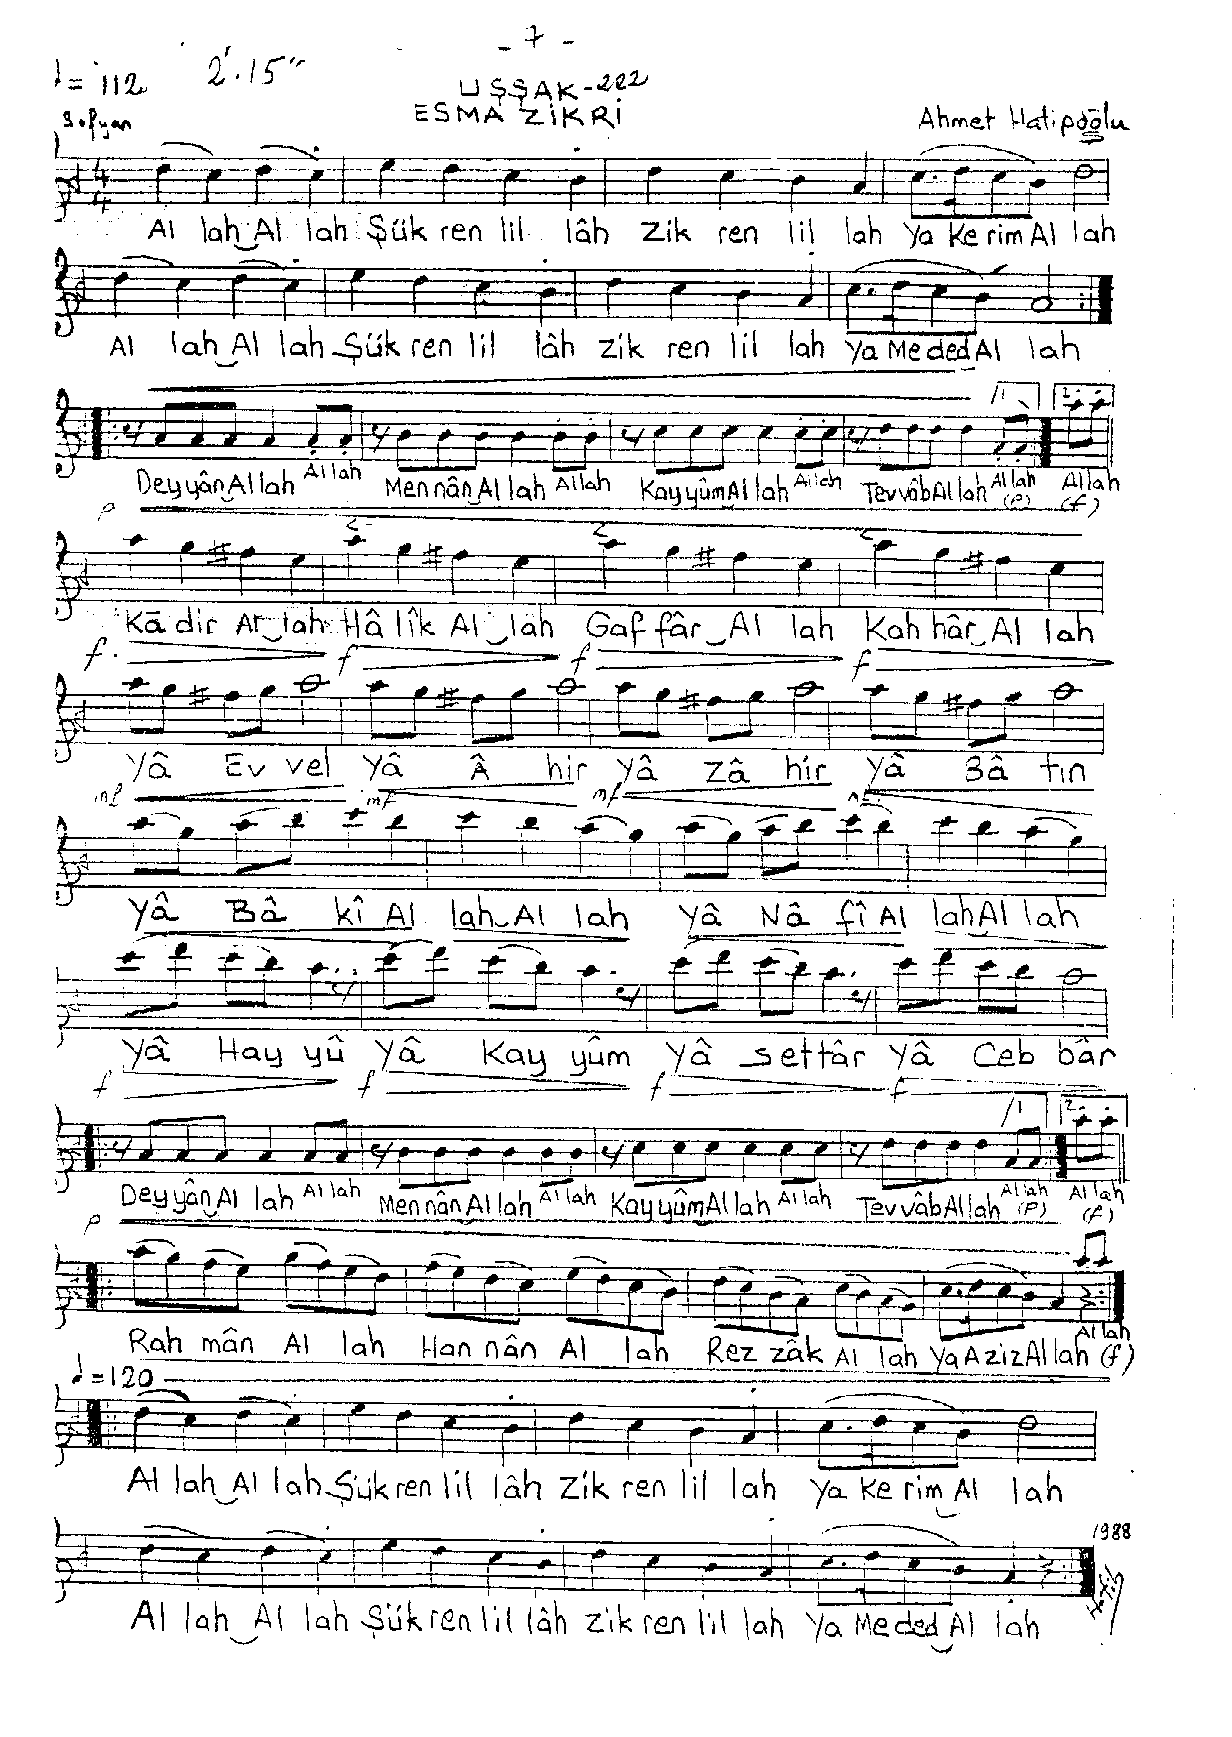 - 7 -
♩= 112 2'.15"
UŞŞAK-222
ESMA ZİKRİ
Sofyan Ahmet Hatipoğlu
Al lah Al lah Şük ren lil lâh Zik ren lil lah Ya Ke rim Al lah
Al lah Al lah Şük ren lil lâh zik ren lil lah Ya Me ded Al lah
1. 2.
Dey yân Al lah Al lah Men nân Al lah Al lah Kay yûm Al lah Al lah Tev vâb Al lah Al lah (P) Al lah (f)
P
Kā dir Al lah Hâ lîk Al lah Gaf fâr Al lah Kah hâr Al lah
f f f f
Yâ Ev vel Yâ Â hir Yâ Zâ hir Yâ Bâ tın
mf mf mf
Yâ Bâ kî Al lah Al lah Yâ Nâ fî Al lah Al lah
Yâ Hay yû Yâ Kay yûm Yâ Settâr Yâ Ceb bâr
f f f f
1 2.
Dey yân Al lah Al lah Men nân Al lah Al lah Kay yûm Al lah Al lah Tev vâb Al lah Al lah (P) Al lah (f)
P
Rah mân Al lah Han nân Al lah Rez zâk Al lah Ya Aziz Al lah Al lah (f)
♩=120
Al lah Al lah Şük ren lil lâh Zik ren lil lah Ya Ke rim Al lah
1988
Al lah Al lah Şük ren lil lâh Zik ren lil lah Ya Me ded Al lah